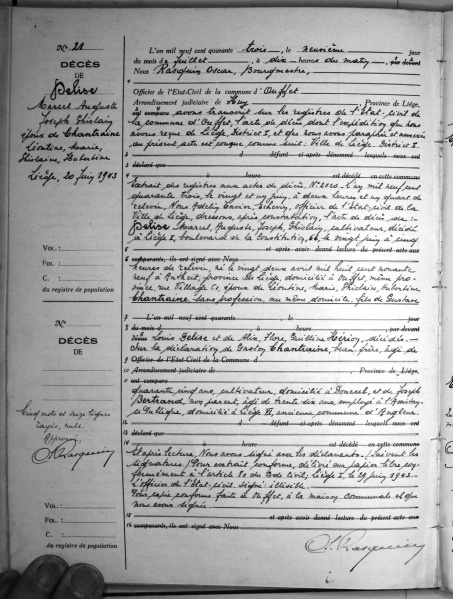 N° 21
DÉCÈS
DE
Delise
Marcel Auguste
Joseph Ghislain
époux de Chantraine
Léontine, Marie,
Ghislaine, Hubertine
Liège, 20 Juin 1943
VOL. :
FOL. :
C.
du registre de population
N°
DÉCÈS
DE
Cinq mots et onze lignes
rayés, nuls.
Approuvé.
VOL. :
FOL. :
C.
du registre de population
L'an mil neuf cent quarante trois, le neuvième jour
du mois de Juillet à dix heures du matin, par devant
Nous Rasquin Oscar, Bourgmestre,
Officier de l'Etat-Civil de la commune d'Ouffet
Arrondissement judiciaire de Huy Province de Liége,
ont comparu avons transcrit sur les registres de l'Etat-civil de
la commune d'Ouffet, l'acte de décès, dont l'expédition que nous
avons reçue de Liège, District I, et que nous avons paraphée et annexée
au présent acte est conçue comme suit : Ville de Liège. District I.
défunt et après dénommé lesquels nous ont
déclaré que
à heure est décédé en cette commune
Extrait des registres aux actes de décès. N° 2020. L'an mil neuf cent
quarante trois, le vingt et un juin, à deux heures et un quart de
relevée, Nous Echevin, officier de l'Etat-civil de la
Ville de Liège, dressons, après constatation, l'acte de décès de :
Delise Marcel, Auguste, Joseph, Ghislain, cultivateur, décédé
à Liège I, boulevard de la Constitution, 66, le vingt juin à cinq
et après avoir donné lecture du présent acte aux
comparants, ils ont signé avec Nous
heures de relevée, né le vingt deux avril mil huit cent nonante
neuf à Antheit, province de Liège, domicilié à Ouffet, même pro-
vince, rue Village époux de Léontine, Marie, Ghislaine, Hubertine
Chantraine, sans profession, au même domicile, fils de Gustave
L'an mil neuf cent quarante , le jour
du mois d à heure , par-devant
Louis Delise et de Alix, Flore, décédés.
Sur la déclaration, de Gaston Chantraine, beau-frère, âgé de
Officier de l'Etat-Civil de la Commune d
Arrondissement judiciaire de Province de Liége,
ont comparu
quarante cinq ans, cultivateur, domicilié à Donceel, et de Joseph
Bertrand, non parent, âgé de trente six ans, employé à l'Assistance
publique, domicilié à Liège ancienne commune d'Angleur.
défunt et après dénommé lesquels nous ont
déclaré que
à heure est décédé en cette commune
et après lecture, Nous avons signé avec les déclarants. (Suivent les
signatures) Pour extrait conforme, délivré sur papier libre, con-
formément à l'article du Code civil ; Liège I, le 29 juin 1943.
L'officier de l'Etat-civil, signé : illisible.
Pour copie conforme faite à Ouffet, à la maison communale et que
nous avons signée.
et après avoir donné lecture du présent acte aux
comparants, ils ont signé avec Nous
O. Rasquin